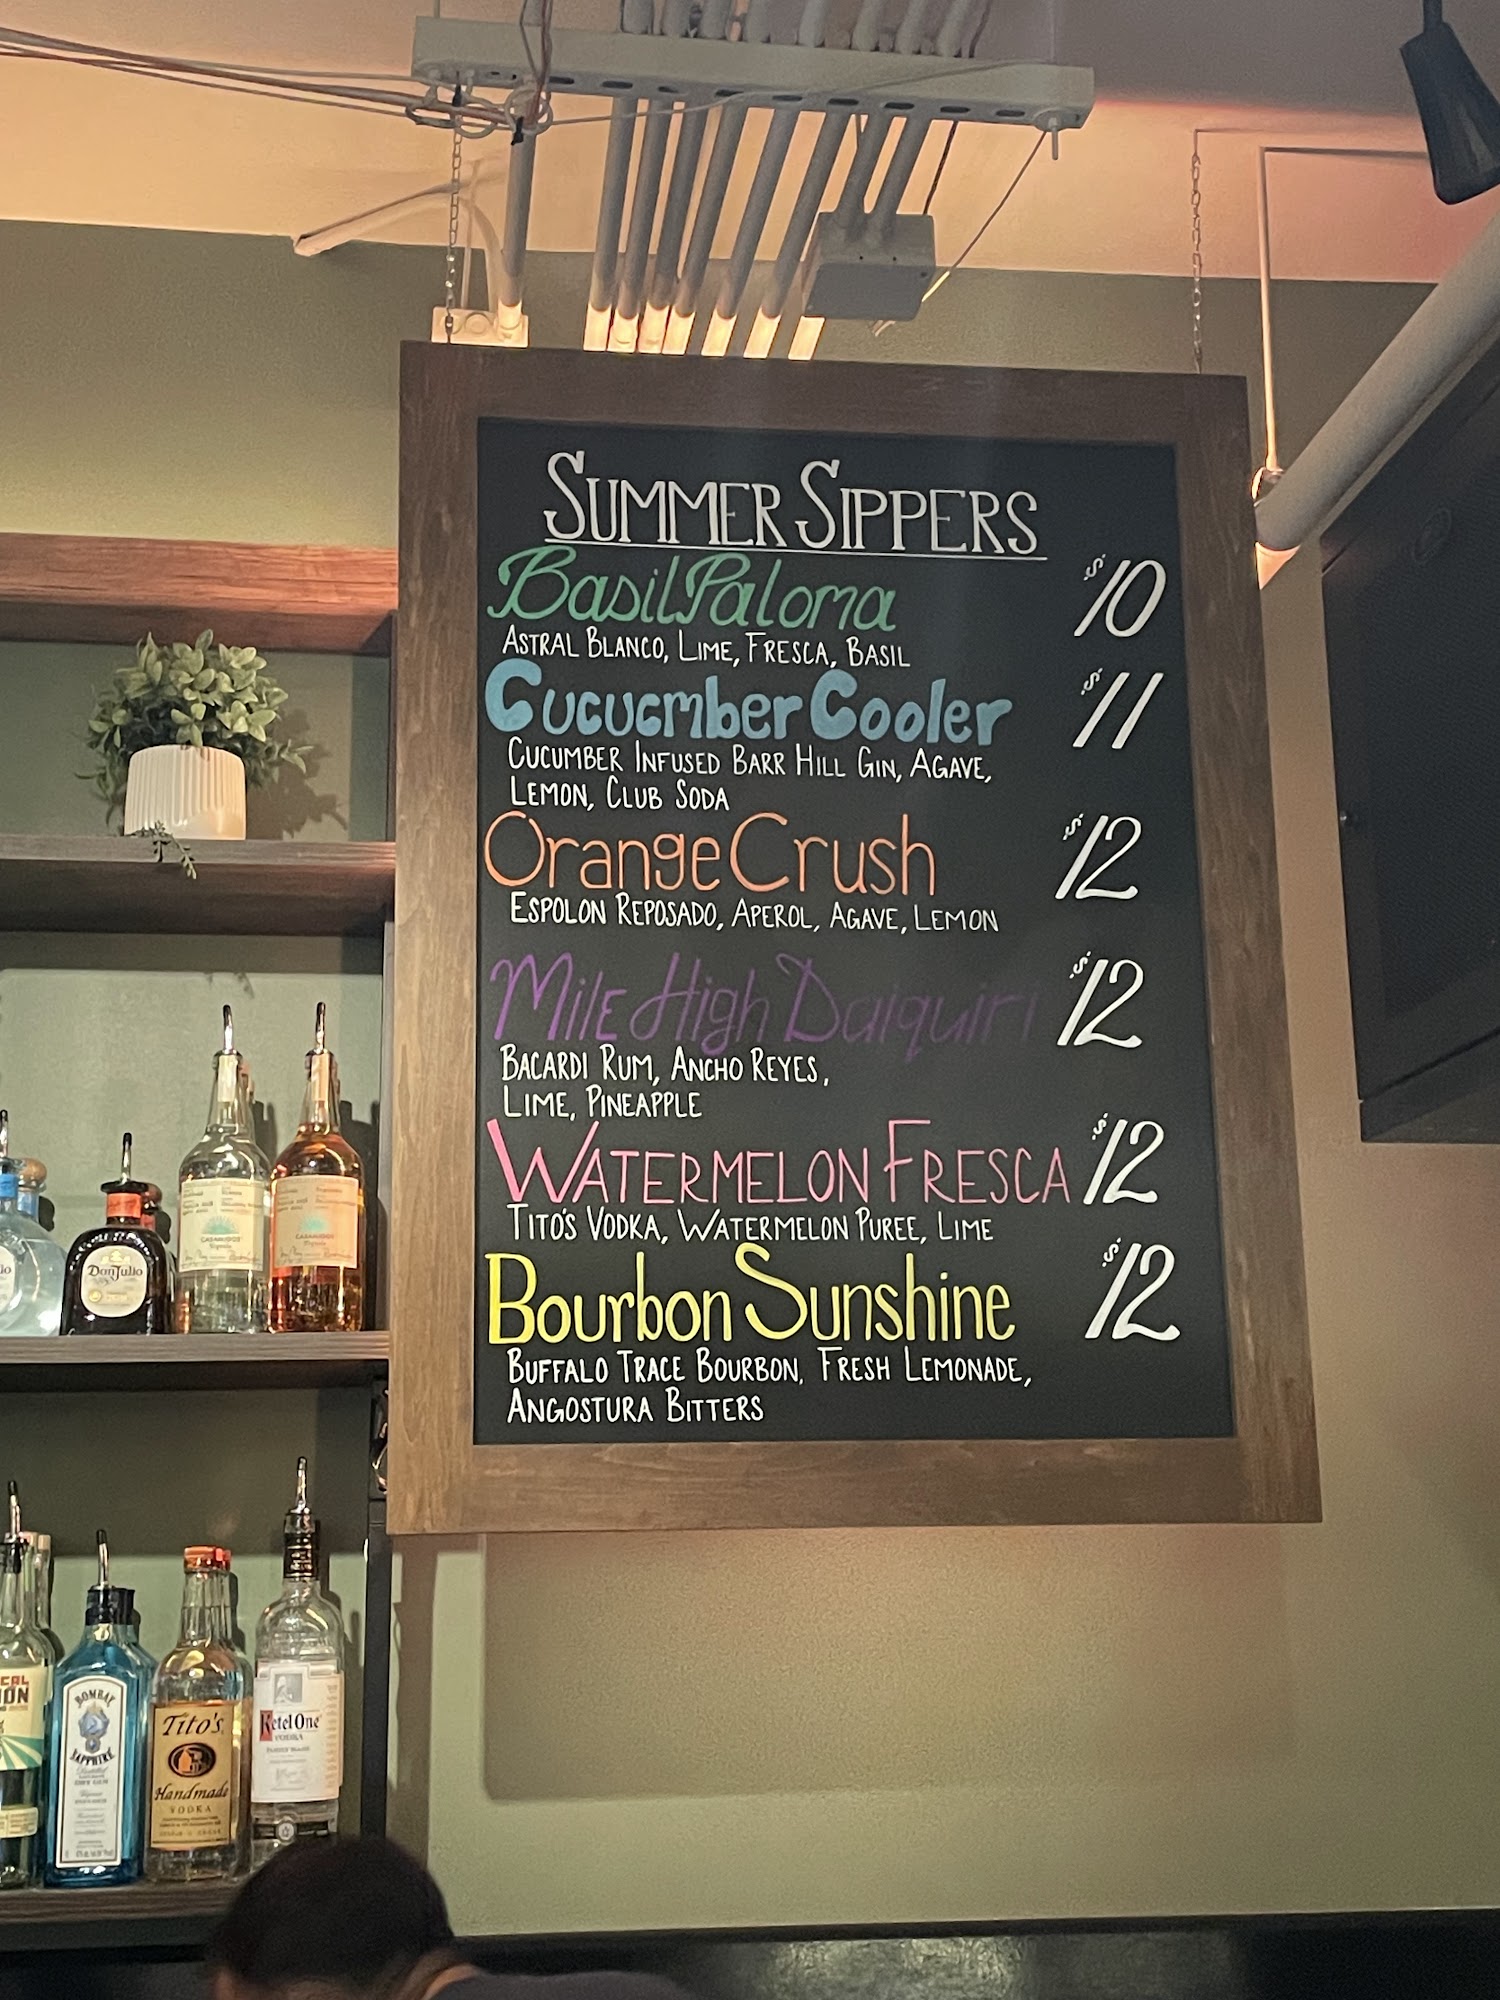 SUMMER SIPPERS
Basil Paloma $10
ASTRAL BLANCO, LIME, FRESCA, BASIL
Cucucmber Cooler $11
CUCUMBER INFUSED BARR HILL GIN, AGAVE,
LEMON, CLUB SODA
Orange Crush $12
ESPOLON REPOSADO, APEROL, AGAVE, LEMON
Mile High Daiquiri $12
BACARDI RUM, ANCHO REYES,
LIME, PINEAPPLE
WATERMELON FRESCA $12
TITO'S VODKA, WATERMELON PUREE, LIME
Bourbon Sunshine $12
BUFFALO TRACE BOURBON, FRESH LEMONADE,
ANGOSTURA BITTERS
Don Julio
CASAMIGOS
Tequila
CASAMIGOS
Tequila
BOMBAY
SAPPHIRE
Tito's
Handmade
VODKA
Ketel One
VODKA